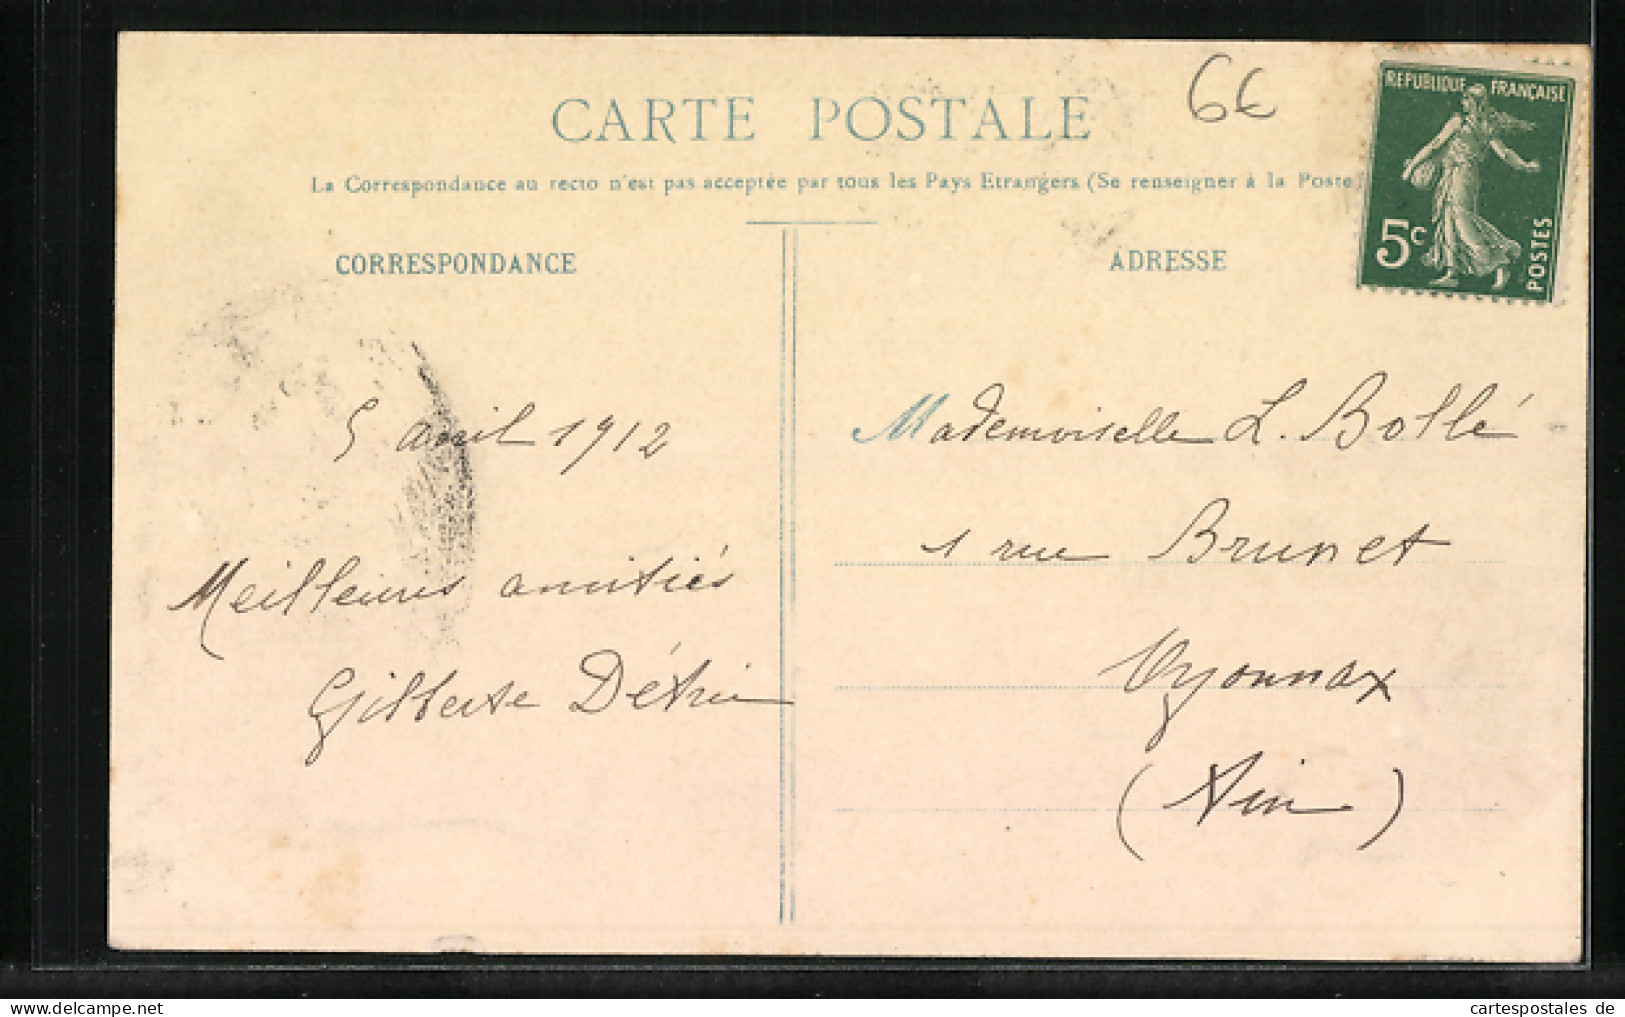 CARTE POSTALE
6€
La Correspondance au recto n'est pas acceptée par tous les Pays Etrangers (Se renseigner à la Poste)
REPUBLIQUE FRANÇAISE
5c
POSTES
CORRESPONDANCE
ADRESSE
5 avril 1912
Meilleures amitiés
Gilberte
Mademoiselle L. Bollé
1 rue Brunet
Oyonnax
(Ain)
cartespostales de